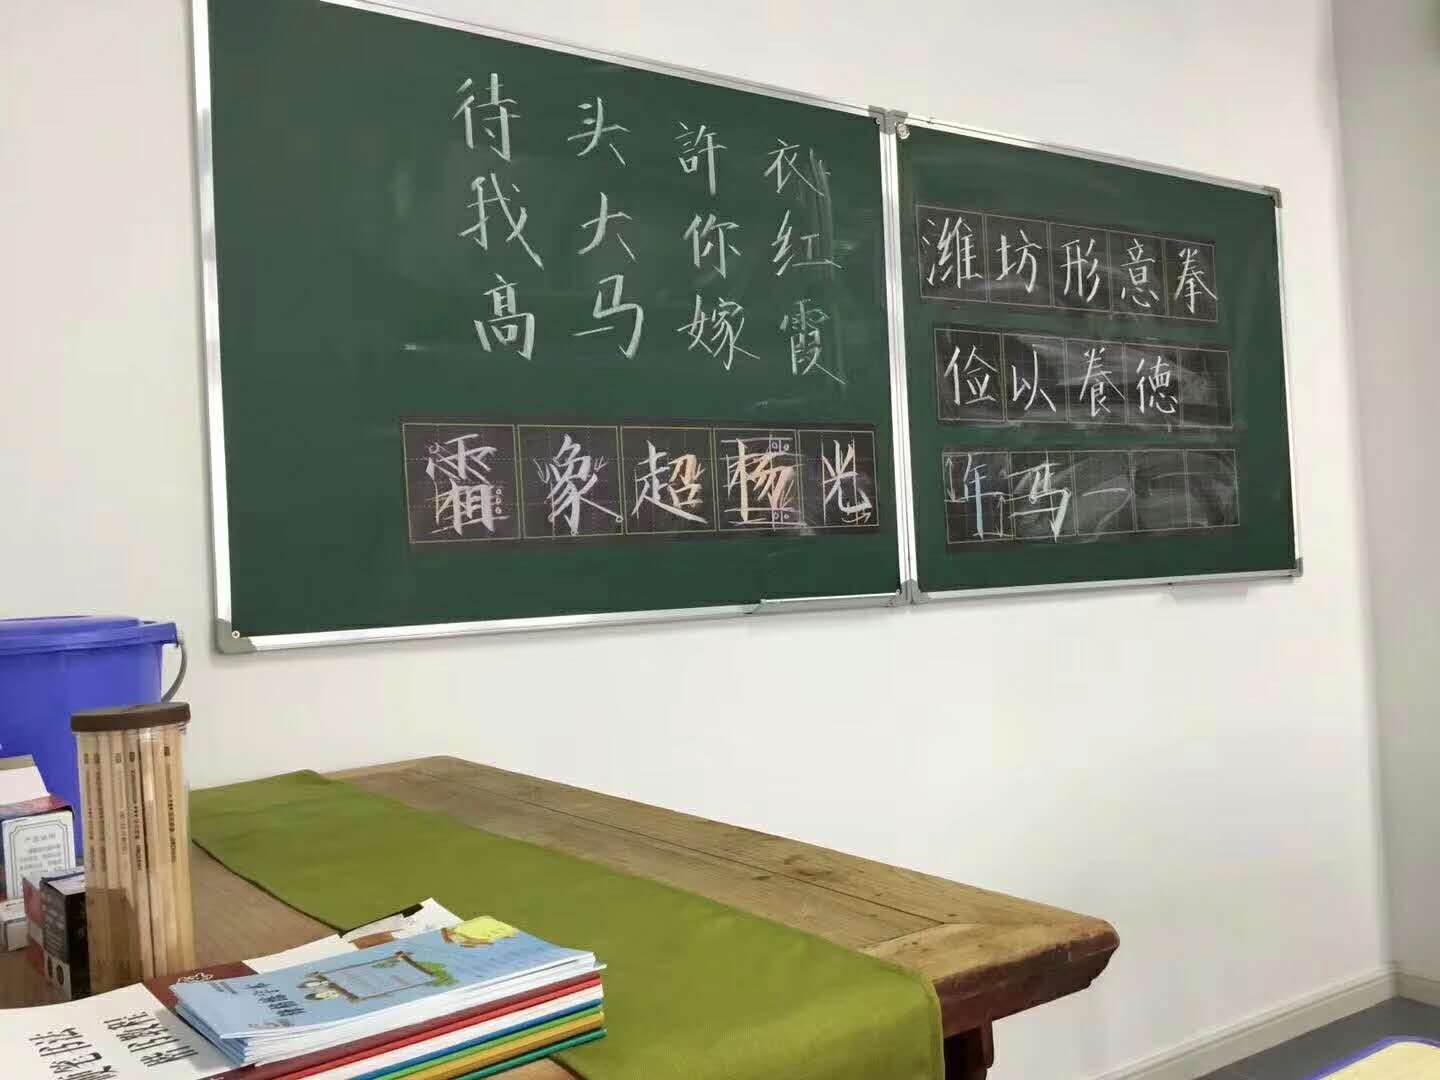 待我高
头大马
許你嫁
衣红霞
霜象超杨光
潍坊形意拳
俭以養德
年马一